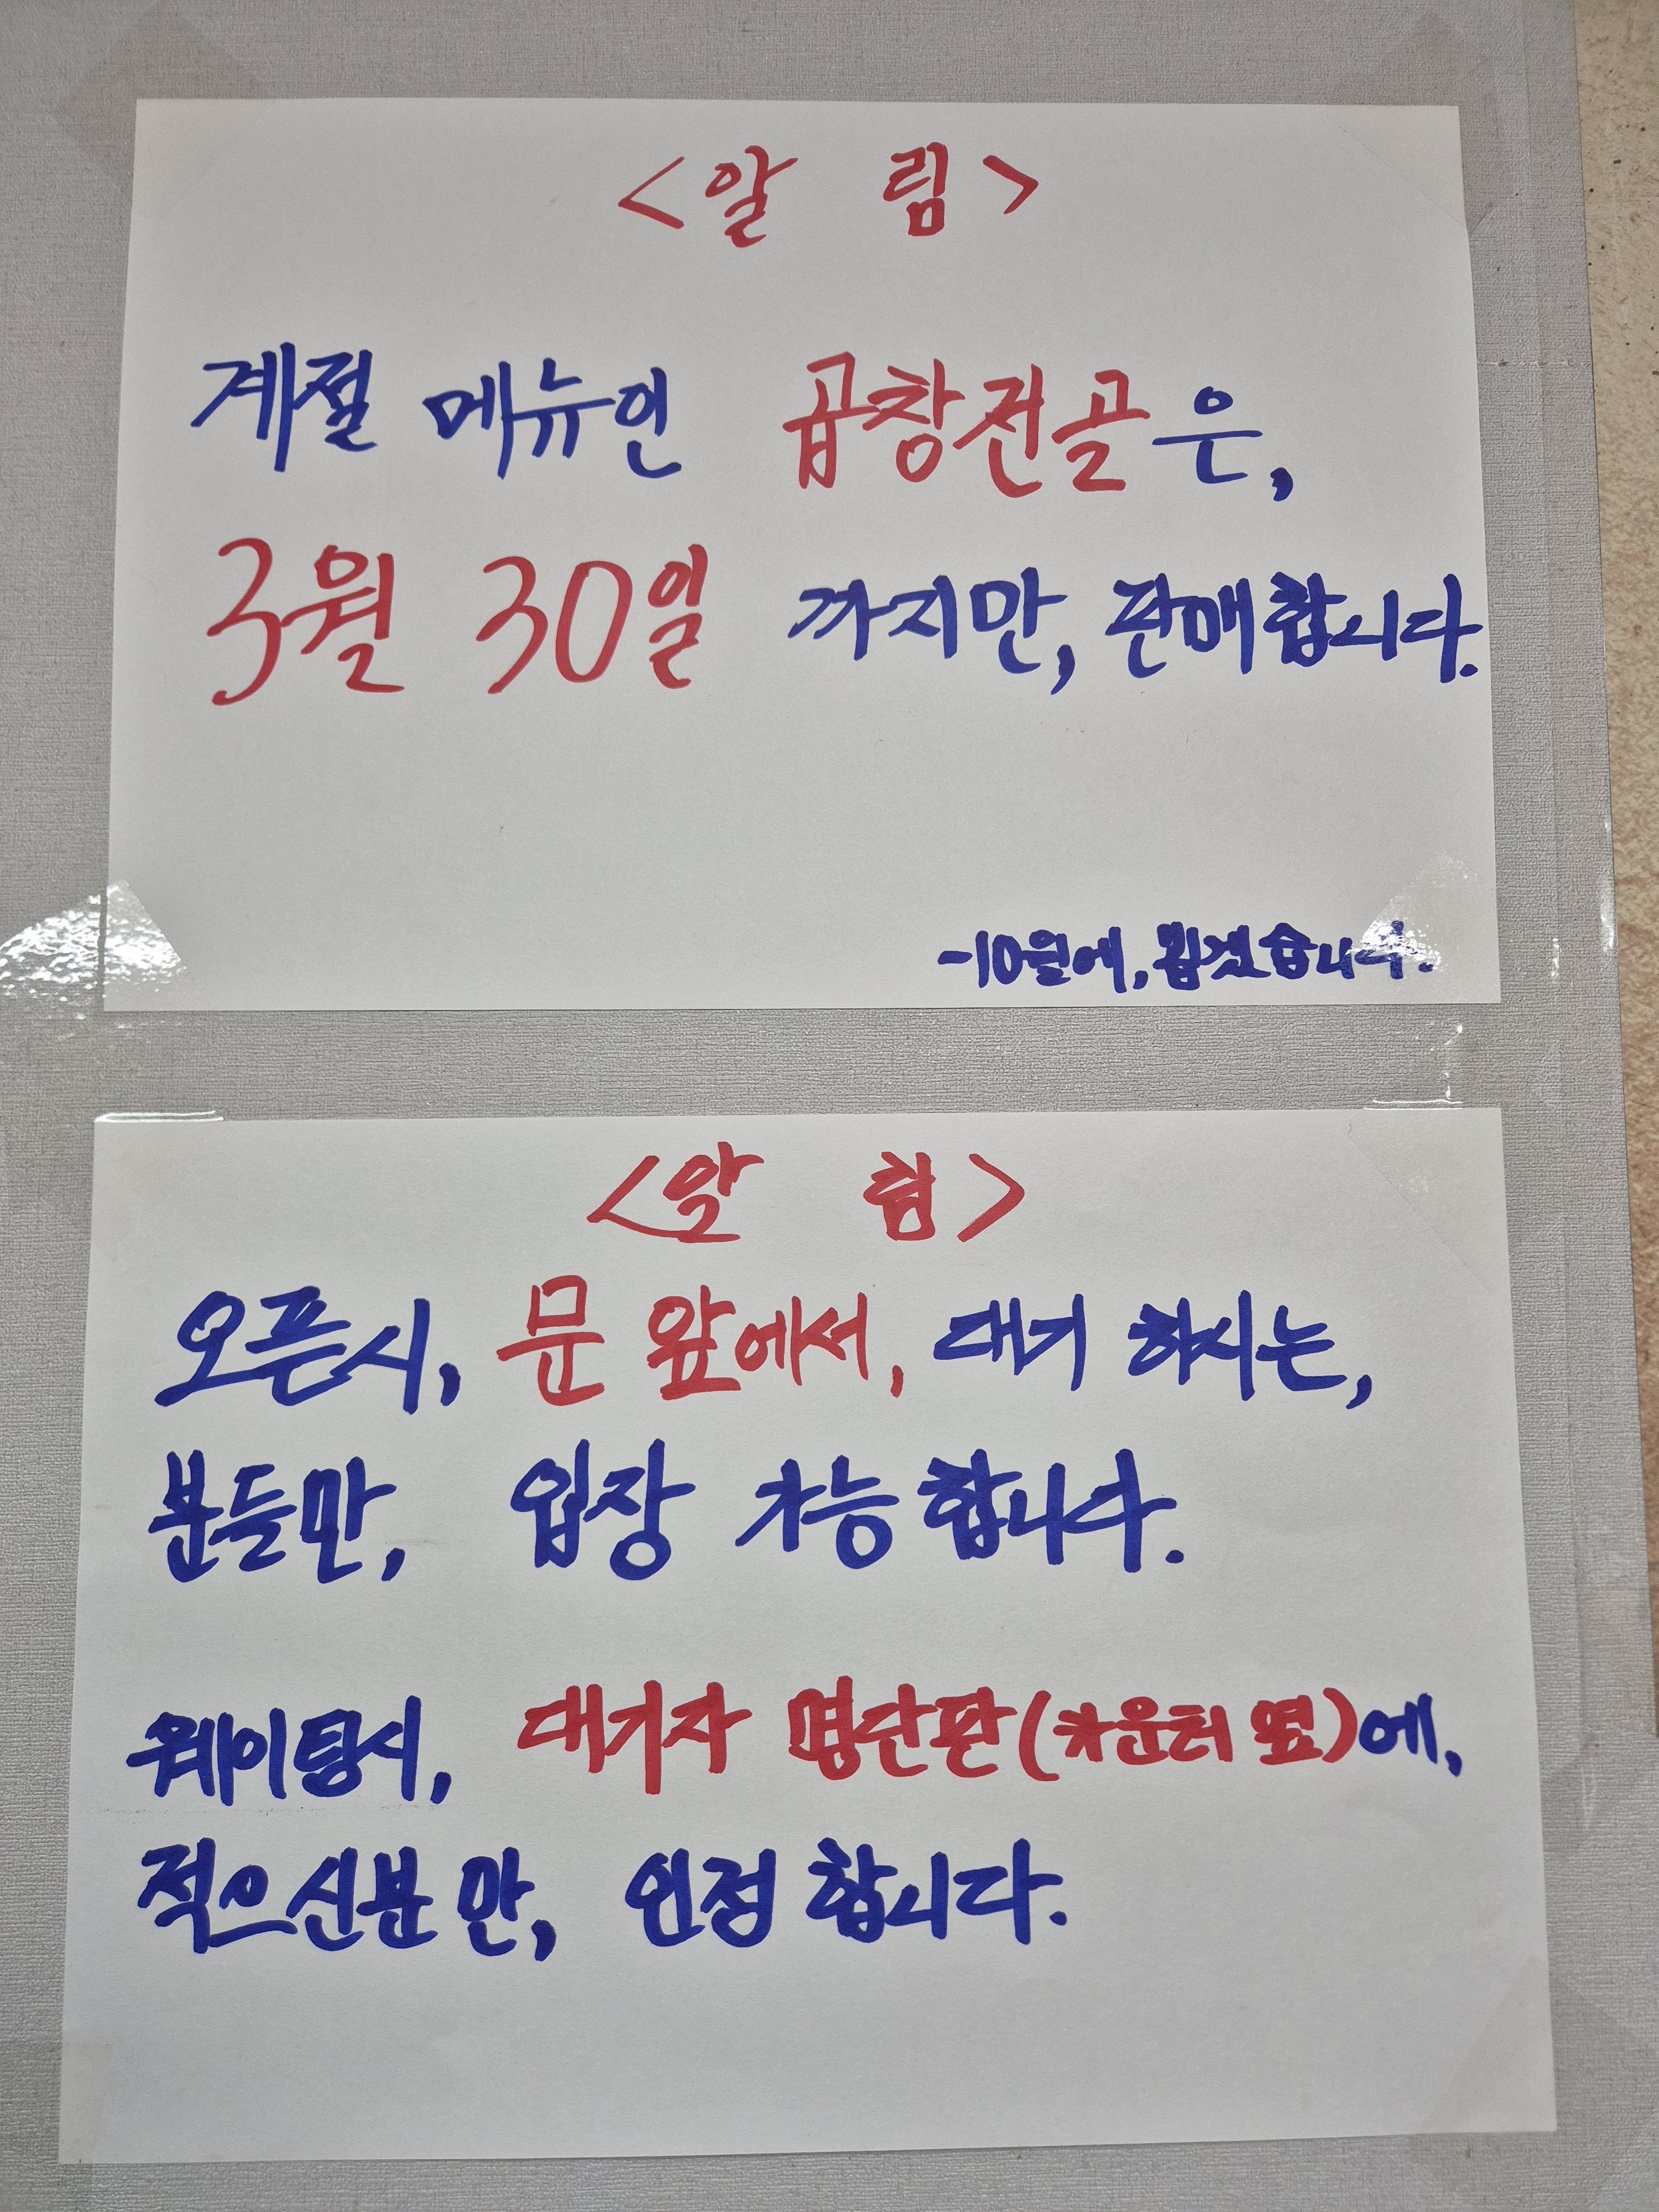 <알 림>
계절 메뉴인 곱창전골은,
3월 30일 까지만, 판매합니다.
-10월에, 뵙겠습니다.
<알 림>
오픈시, 문 앞에서, 대기 하시는,
분들만, 입장 가능합니다.
웨이팅시, 대기자 명단판(카운터 옆)에,
적으신분만, 인정합니다.